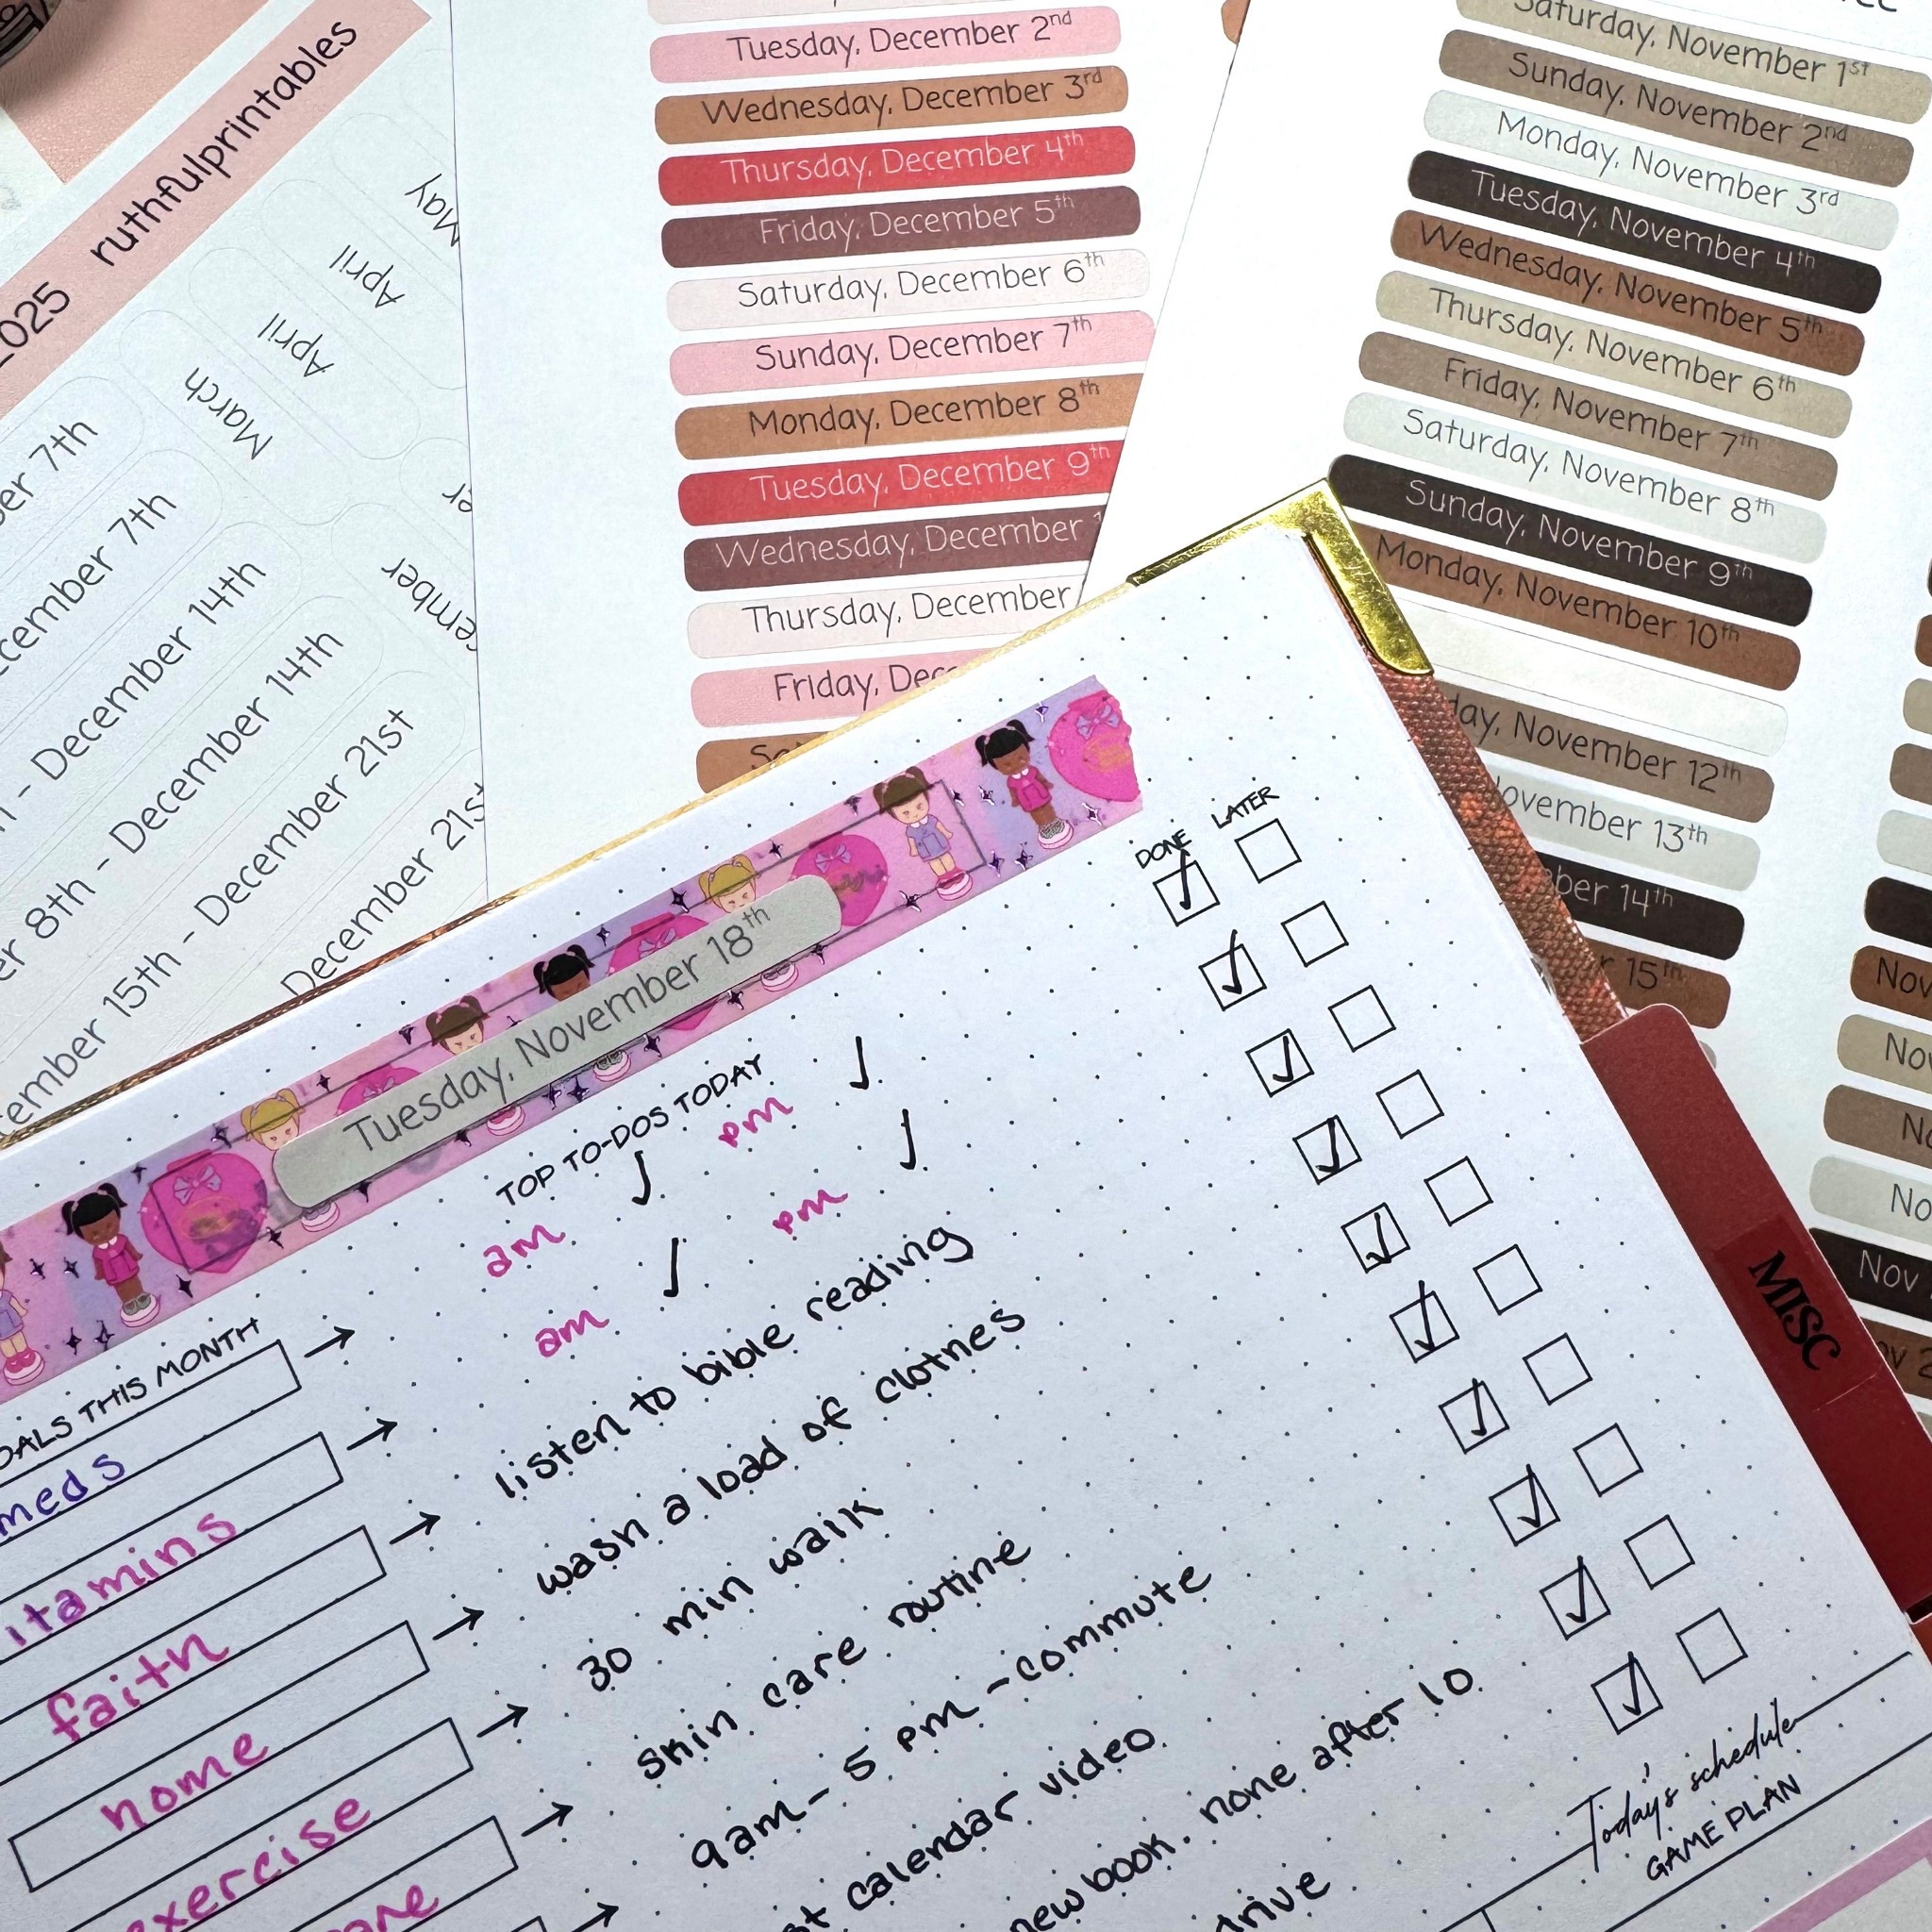 2025 ruthfulprintables
May
April
April
March
7th
December 7th
December 14th
8th - December 14th
15th - December 21st
December 21st
Tuesday, December 2nd
Wednesday, December 3rd
Thursday, December 4th
Friday, December 5th
Saturday, December 6th
Sunday, December 7th
Monday, December 8th
Tuesday, December 9th
Wednesday, December
Thursday, December
Friday,
Saturday, November 1st
Sunday, November 2nd
Monday, November 3rd
Tuesday, November 4th
Wednesday, November 5th
Thursday, November 6th
Friday, November 7th
Saturday, November 8th
Sunday, November 9th
Monday, November 10th
November 12th
November 13th
14th
15th
Nov
Nov
No
No
Nov
Tuesday, November 18th
TOP TO-DOS TODAY
DONE LATER
GOALS THIS MONTH
meds am pm
vitamins am pm
faith listen to bible reading
home wash a load of clothes
exercise 30 min walk
skin care routine
9am - 5 pm - commute
calendar video
new book. none after 10
drive
Today's schedule
GAME PLAN
MISC